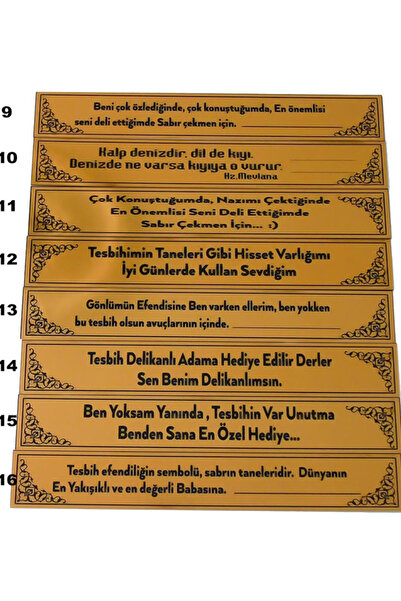 9
Beni çok özlediğinde, çok konuştuğumda, En önemlisi
seni deli ettiğimde Sabır çekmen için.
10
Kalp denizdir, dil de kıyı.
Denizde ne varsa kıyıya o vurur.
Hz.Mevlana
11
Çok Konuştuğumda, Nazımı Çektiğinde
En Önemlisi Seni Deli Ettiğimde
Sabır Çekmen İçin... :)
12
Tesbihimin Taneleri Gibi Hisset Varlığımı
İyi Günlerde Kullan Sevdiğim
13
Gönlümün Efendisine Ben varken ellerim, ben yokken
bu tesbih olsun avuçlarının içinde.
14
Tesbih Delikanlı Adama Hediye Edilir Derler
Sen Benim Delikanlımsın.
15
Ben Yoksam Yanında , Tesbihin Var Unutma
Benden Sana En Özel Hediye...
16
Tesbih efendiliğin sembolü, sabrın taneleridir. Dünyanın
En Yakışıklı ve en değerli Babasına.